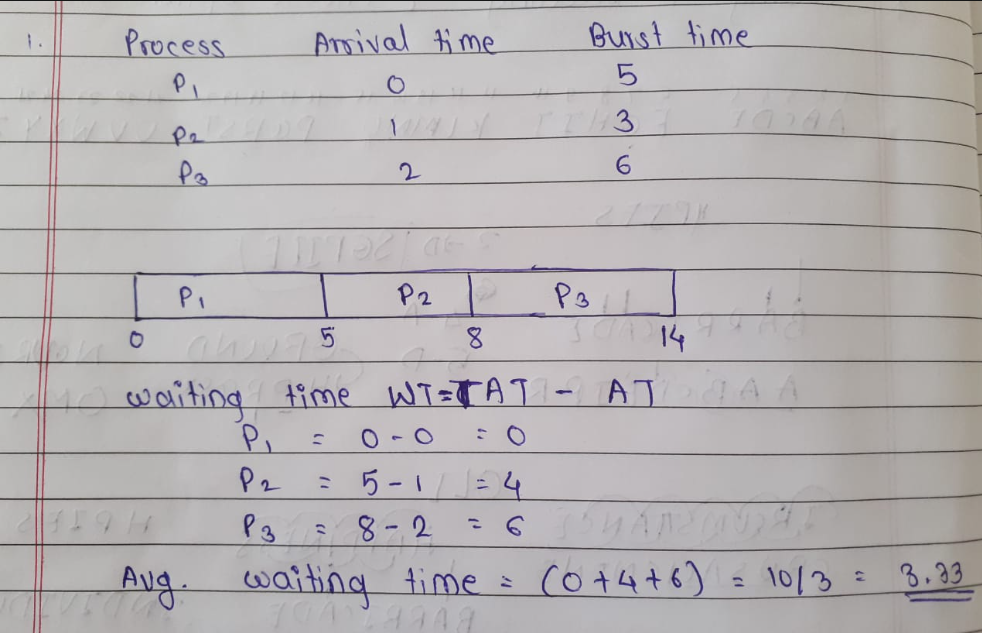 1. Process Arrival time Burst time
P1 0 5
P2 1 3
P3 2 6
P1 P2 P3
0 5 8 14
waiting time WT=TAT - AT
P1 = 0-0 = 0
P2 = 5-1 = 4
P3 = 8-2 = 6
Avg. waiting time = (0+4+6) = 10/3 = 3.33